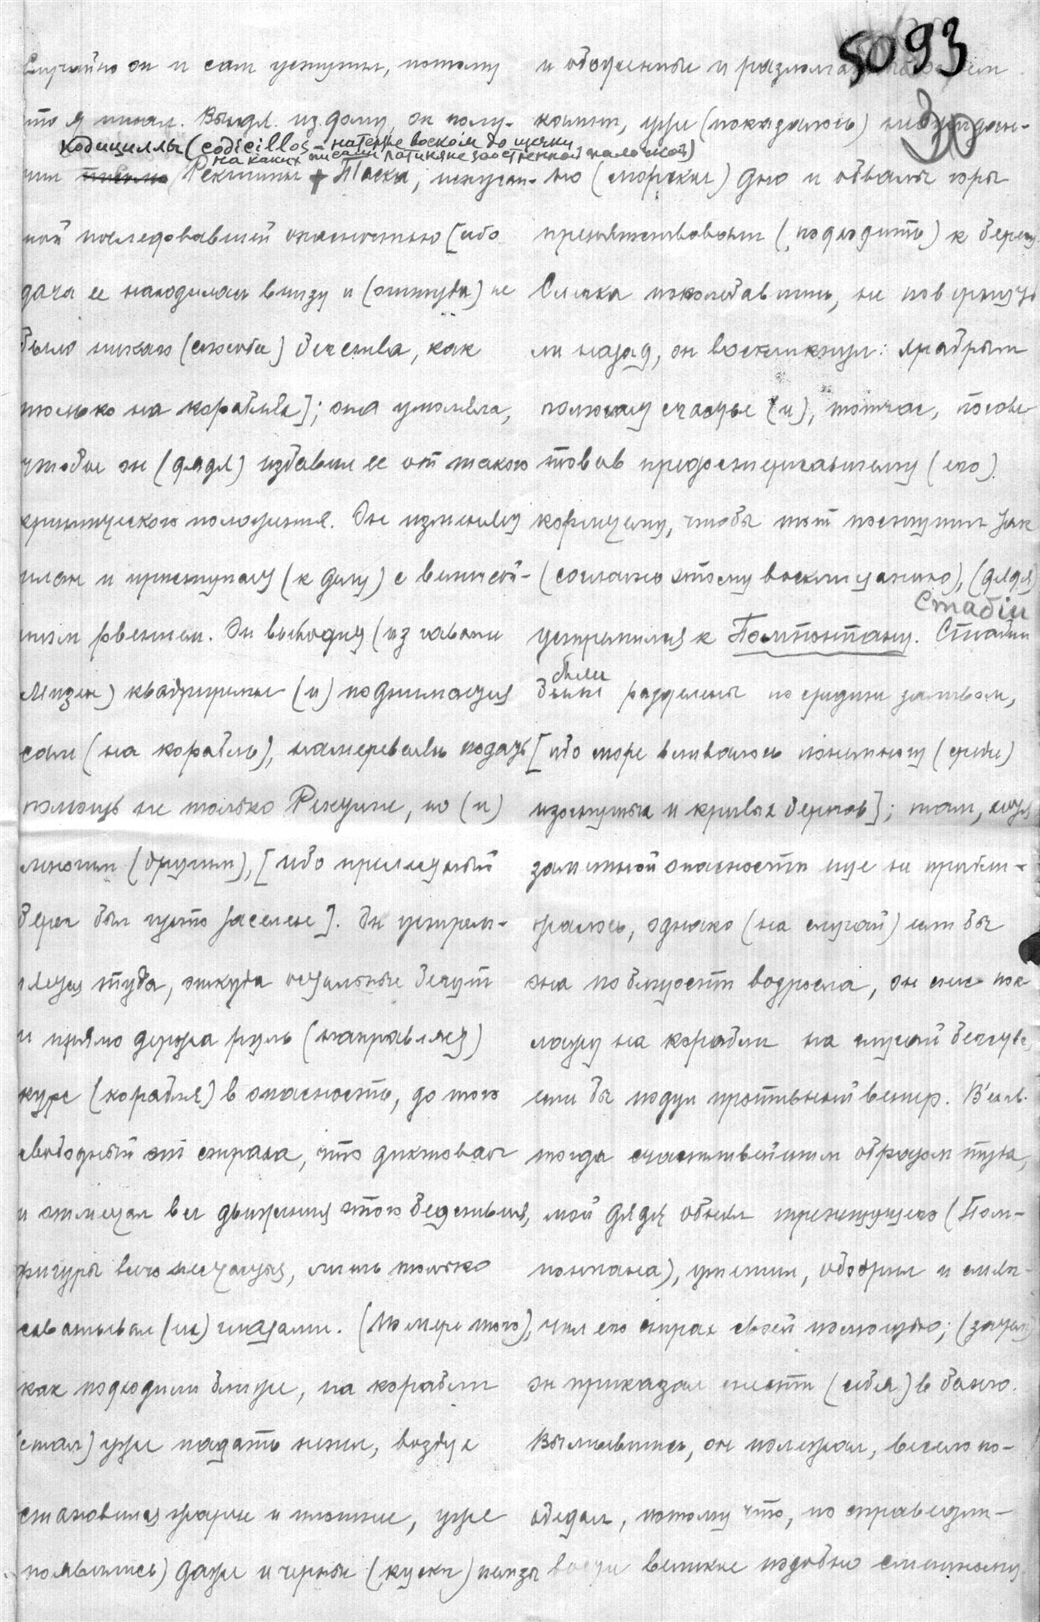 5093
30
Случайно он и сам уступил, потому
что я писал. Выйдя из дому, он полу-
кодициллы (codicillos – натертые воском дощечки
на каких писали латиняне заостренной палочкой)
чил письмо Ректины + Паски, испуган-
ной последовавшей опасностью [ибо
дача ее находилась внизу и (оттуда) не
было никакого (способа) бегства, как
только на кораблях]; она умоляла,
чтобы он (дядя) избавил ее от такого
критического положения. Он изменяет
план и приступает (к делу) с величай-
шим рвением. Он выводит (из гавани
Мизен) квадриремы (и) поднимается
сам (на корабль), намереваясь подать
помощь не только Рекцине, но (и)
многим (другим), [ибо прелестный
берег был густо заселен]. Он устрем-
ляется туда, откуда остальные бегут
и прямо держа руль (направляет)
курс (корабля) в опасность, до того
свободный от страха, что диктовал
и отмечал все движения этого бедствия,
фигуры всего несчастья, лишь только
схватывал (их) глазами. (По мере того),
как подходили ближе, на корабли
(стал) уже падать пепел, воздух
становился жарче и плотнее, уже
появились) даже и черные (куски) пемзы
и обожженные и разломанные огнем
камни, уже (показалось) неожидан-
но (морское) дно и обвалы горы
препятствовали (подходить) к берегу.
Слегка поколебавшись, не повернуть
ли назад, он воскликнул: храбрым
помогает счастье (и), тотчас, посове-
товав предостерегавшему (его)
кормчему, чтобы тот поступил так
(согласно этому восклицанию), (дядя)
Стабіи
устремился к Помпонтану. Стабии
были
были разделены по средине заливом,
[ибо море вливалось понемногу (среди)
изогнутых и кривых берегов]; там, хотя
заметной опасности еще не прибли-
жалось, однако (на случай) если бы
она поблизости возросла, он снес пок-
лажу на корабли на случай бегства,
если бы подул противный ветер. Въехав
тогда счастливейшим образом туда,
мой дядя обнял трепещущего (Пом-
понтана), утешил, ободрил и смяг-
чил его страх своей помощью; (затем)
он приказал снести (себя) в баню.
Вымывшись, он полежал, весело по-
обедал, потому что, по справедли-
вости великие подобно смешному